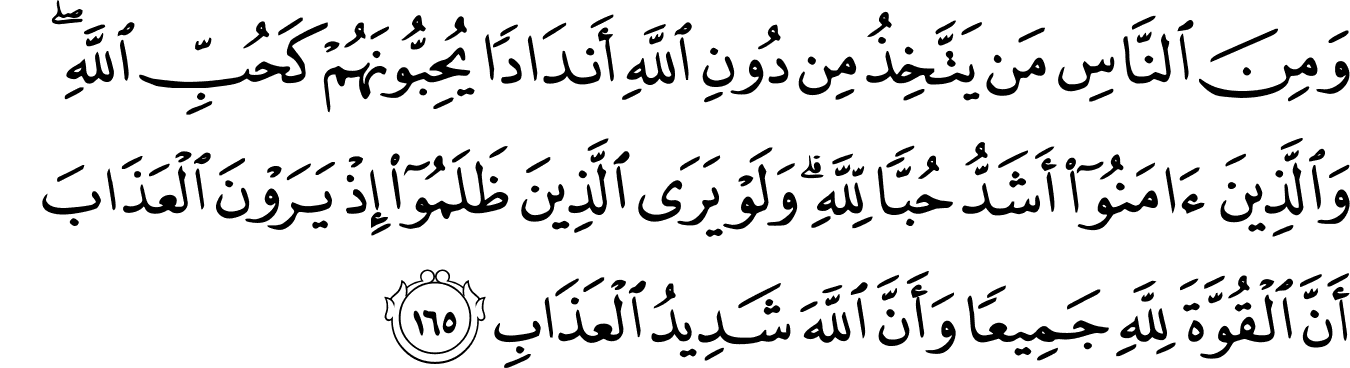 وَمِنَ ٱلنَّاسِ مَن يَتَّخِذُ مِن دُونِ ٱللَّهِ أَندَادًا يُحِبُّونَهُمْ كَحُبِّ ٱللَّهِ ۖ
وَٱلَّذِينَ ءَامَنُوٓا۟ أَشَدُّ حُبًّا لِّلَّهِ ۗ وَلَوْ يَرَى ٱلَّذِينَ ظَلَمُوٓا۟ إِذْ يَرَوْنَ ٱلْعَذَابَ
أَنَّ ٱلْقُوَّةَ لِلَّهِ جَمِيعًا وَأَنَّ ٱللَّهَ شَدِيدُ ٱلْعَذَابِ ١٦٥